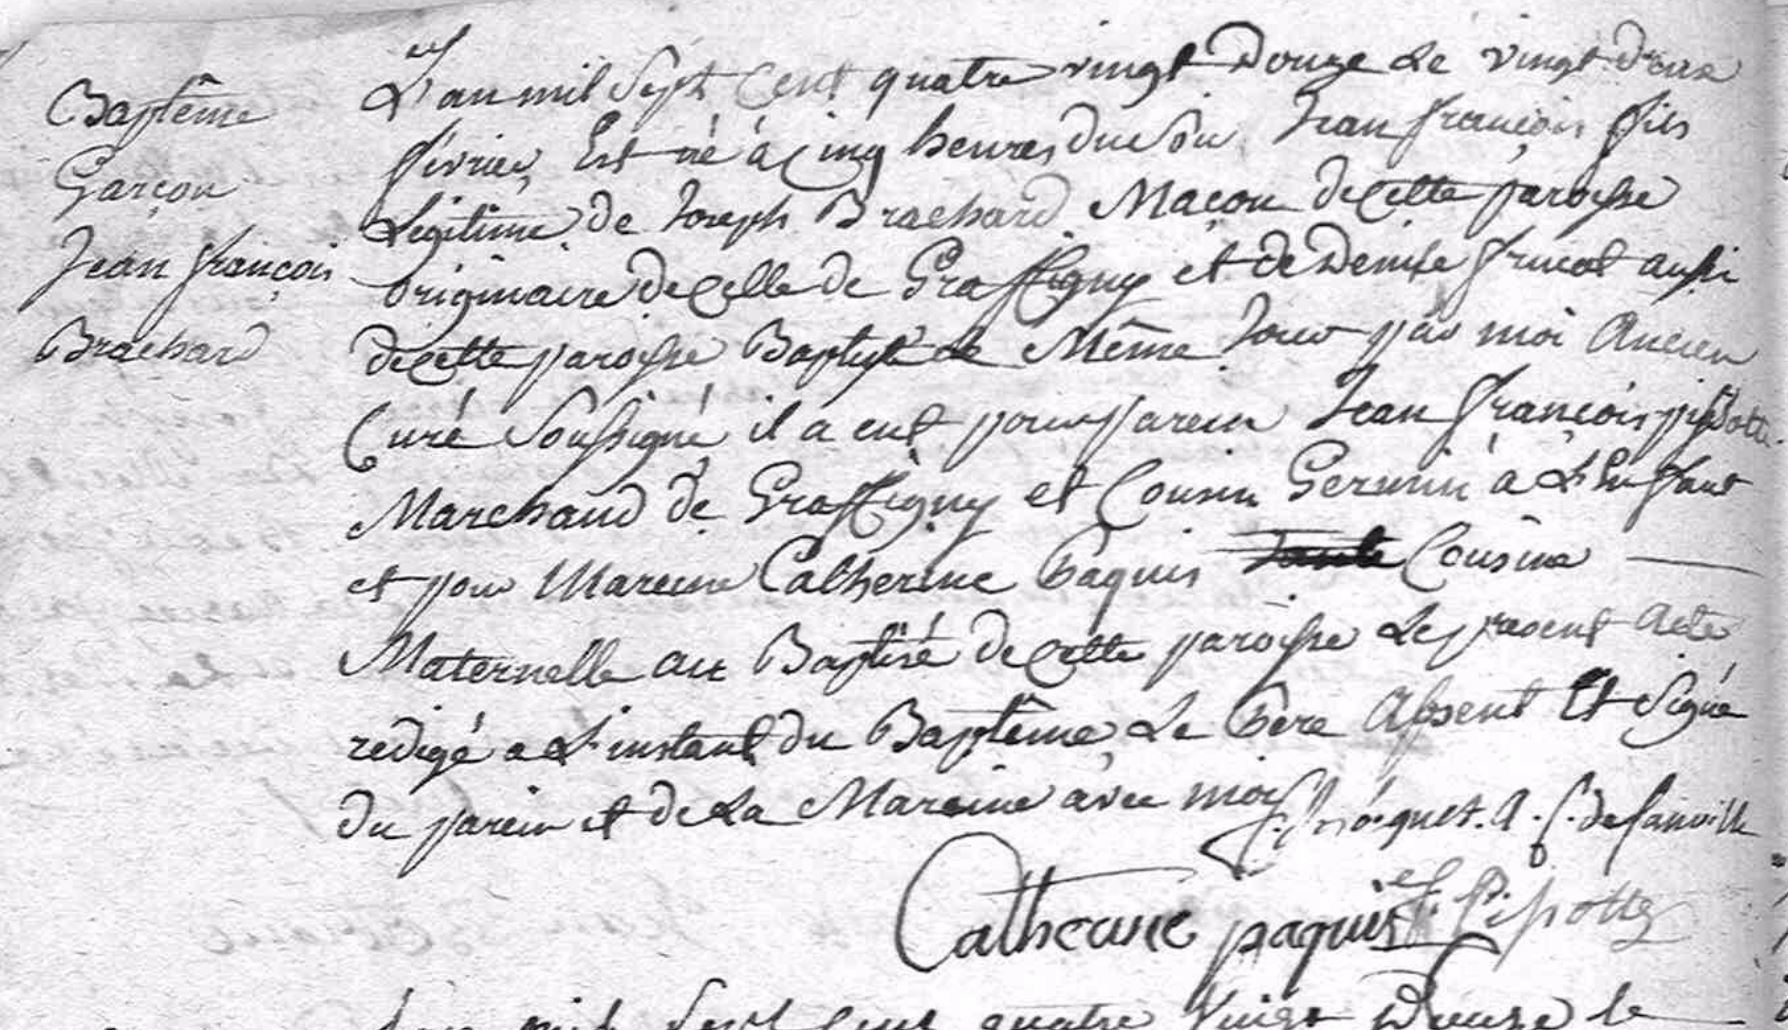 Baptême
Garçon
Jean françois
Brachard
L'an mil Sept Cent quatre vingt Douze Le vingt Deux
fevrier Est né à Cinq heures du Soir Jean françois fils
Légitime de Joseph Brachard Maçon de Cette paroisse
originaire de Celle de Graffigny et de Denise frucot aussi
de Cette paroisse Baptisé le Même Jour par moi Ancien
Curé Soussigné il a eut pour parein Jean françois
Marchand de Graffigny et Cousin Germin à L'Enfant
et pour Mareine Catherine Paquis Cousine
Maternelle au Baptisé de Cette paroisse Le present Acte
redigé a L'instant du Baptême, Le Pere Absent Et Signé
du parein et de La Mareine avec moi
Catherine paquis
L'an mil Sept Cent quatre Vingt Douze le